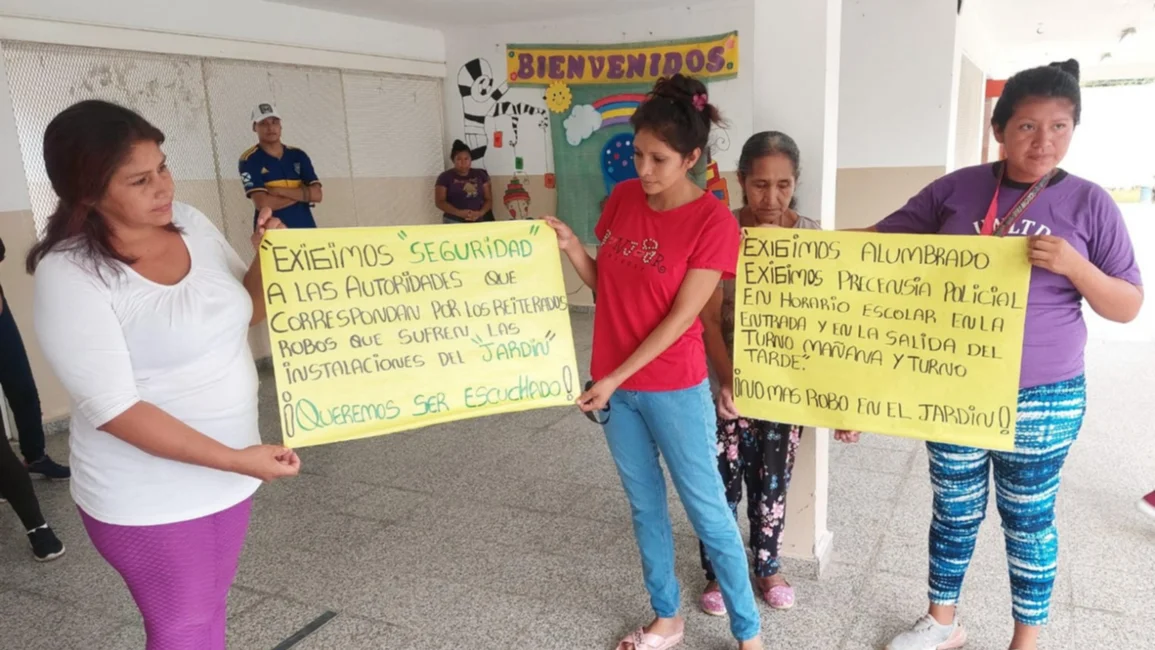 BIENVENIDOS
"EXIGIMOS "SEGURIDAD"
A LAS AUTORIDADES QUE
CORRESPONDAN POR LOS REITERADOS
ROBOS QUE SUFREN LAS
INSTALACIONES DEL "JARDIN"
¡QUEREMOS SER ESCUCHADO!
EXIGIMOS ALUMBRADO
EXIGIMOS PRECENSIA POLICIAL
EN HORARIO ESCOLAR EN LA
ENTRADA Y EN LA SALIDA DEL
TURNO MAÑANA Y TURNO
TARDE".
¡NO MAS ROBO EN EL JARDIN!